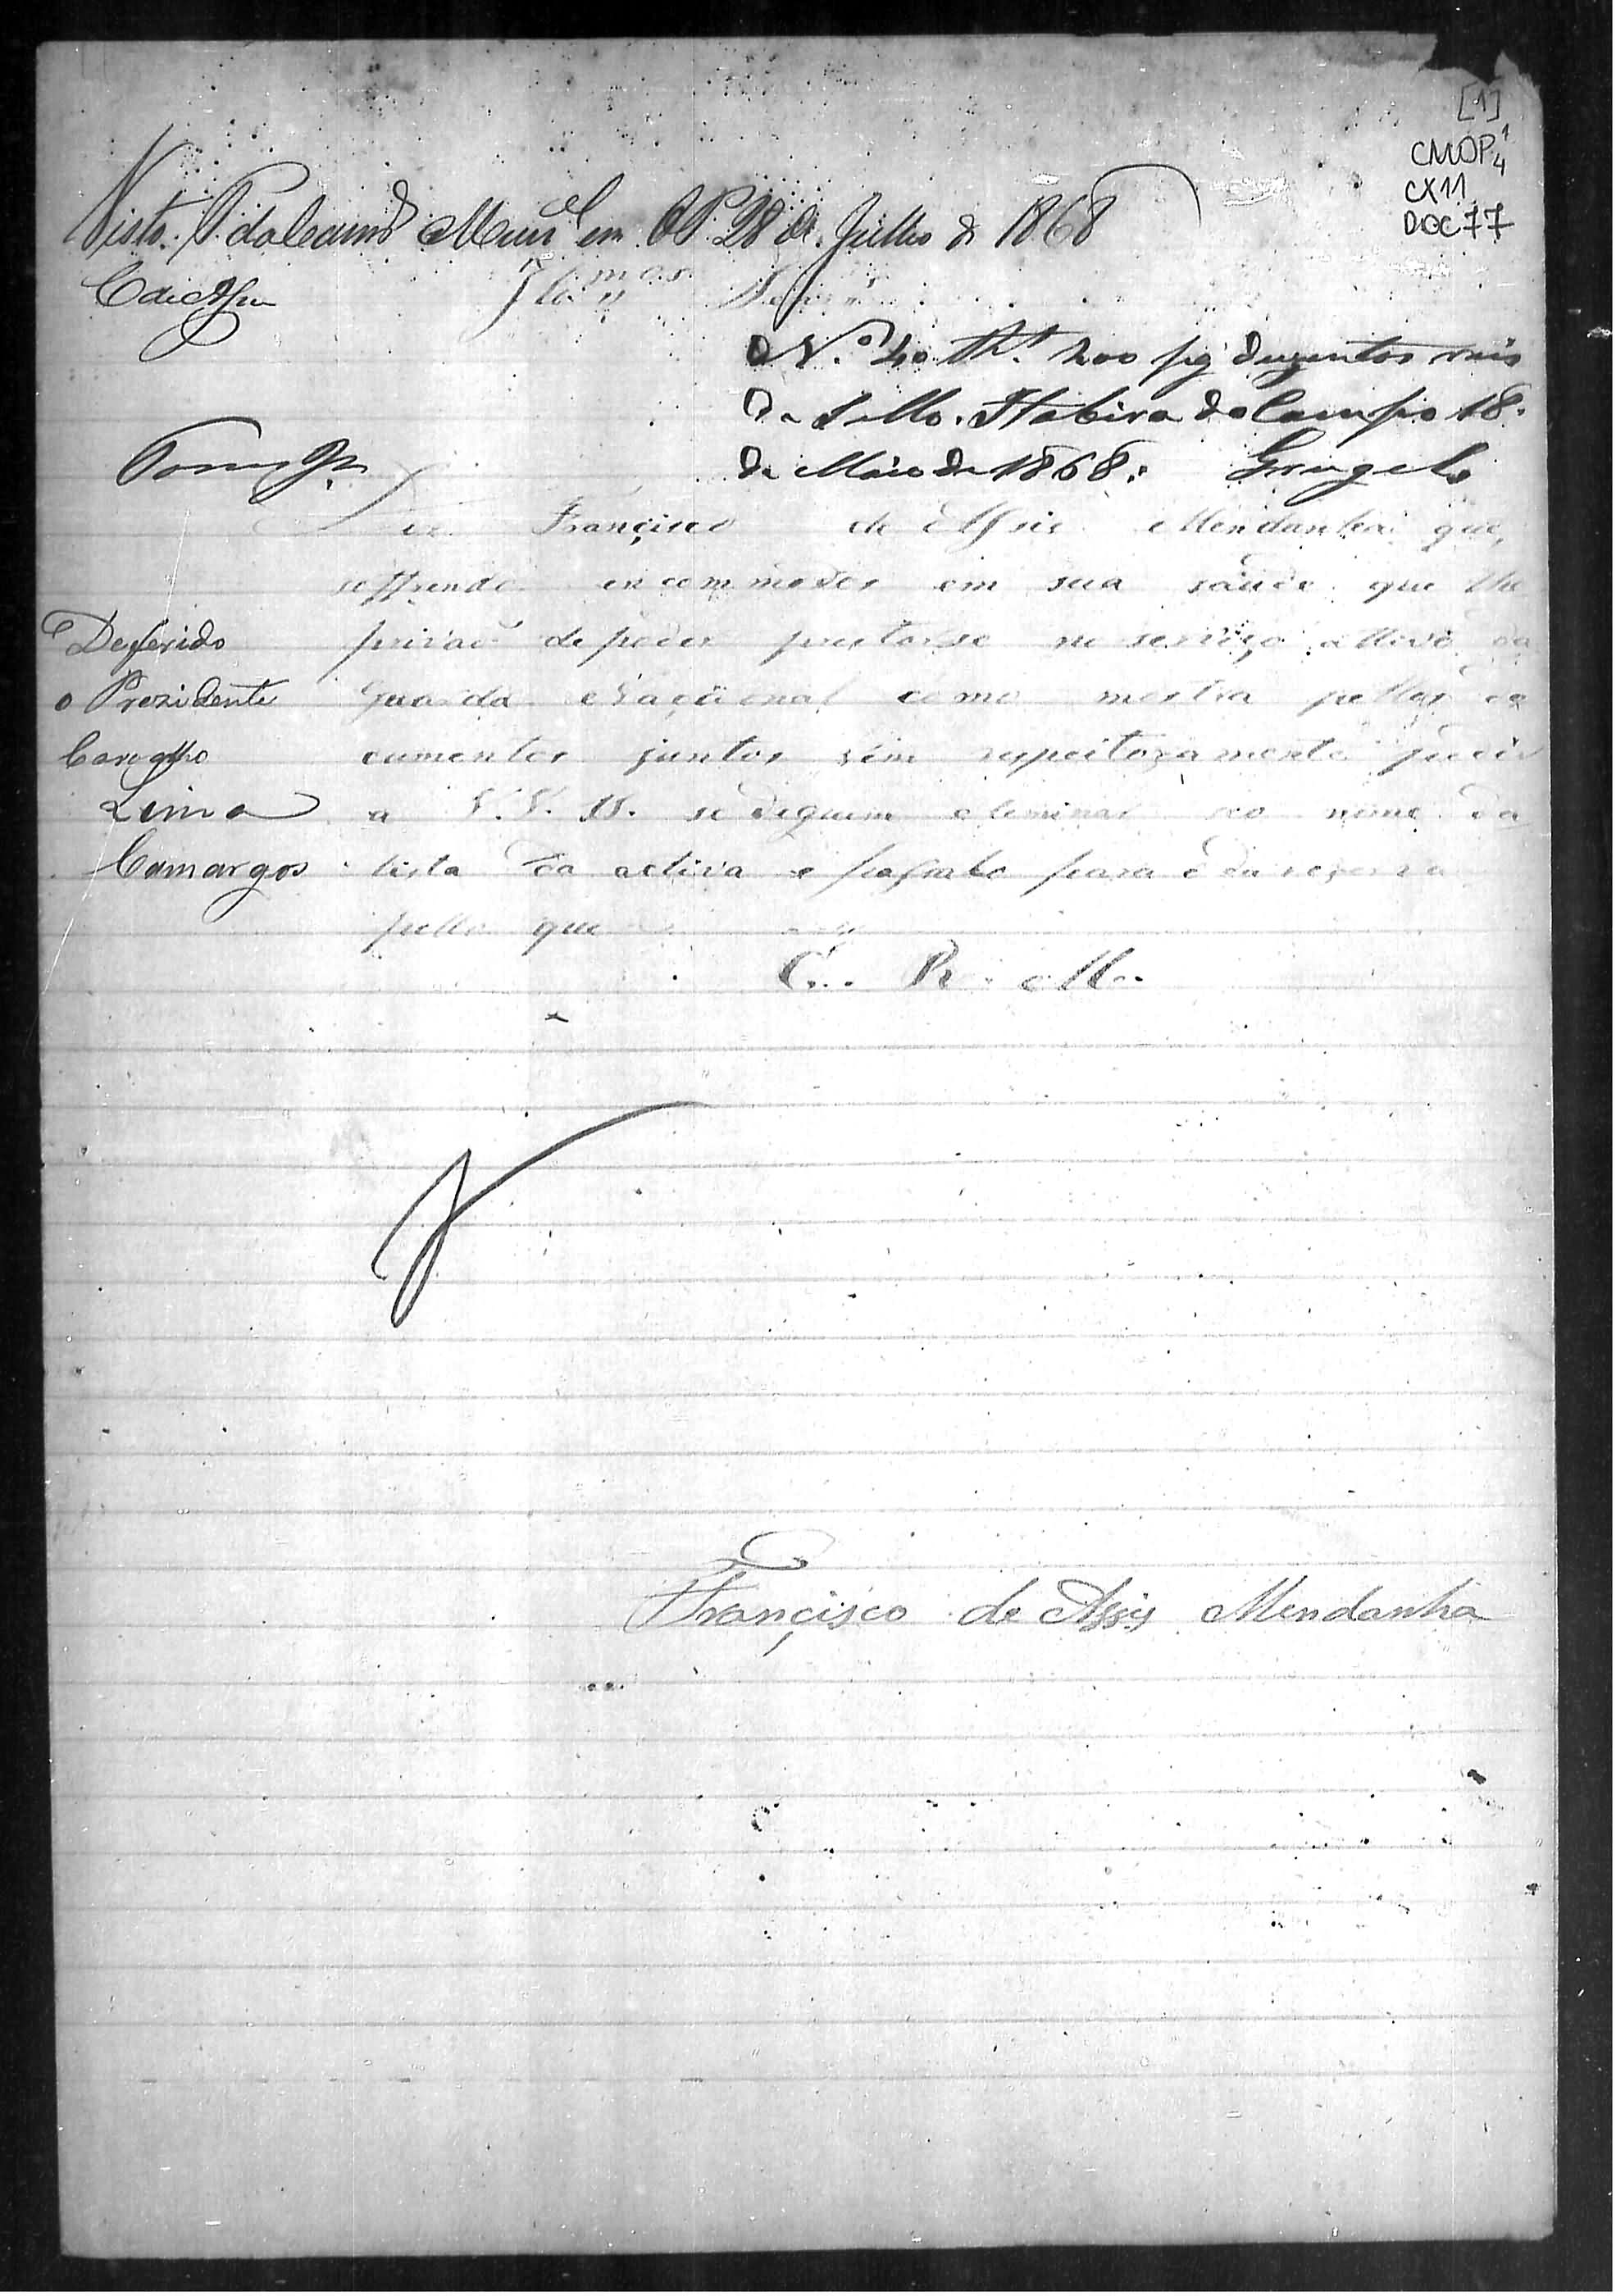 [1]
CMOP 1/4
CX11
DOC77
Visto. P da Camr.ª Mun.el em OP. 28 de Julho de 1868
Ill.mos Senr.es
N.º 40 R.s 200 pg duzentos reis
de Sello. Itabira do Campo 18.
de Maio de 1868. Gurgel
Diz Francisco de Assis Mendanha que,
soffrendo encommodos em sua saude que lhe
Deferido
privaõ de poder prestar se no serviço attivo da
o Prezidente
Guarda Naçional como mostra pellos do
Carvalho
cumentos juntos vem respeitozamente pedir
Lima
a V. V. SS. se diguem eleminar seo nome da
Camargos
lista da activa e passalo para a da reserva
pello que
E. R. Mce.
Francisco de Assis Mendanha